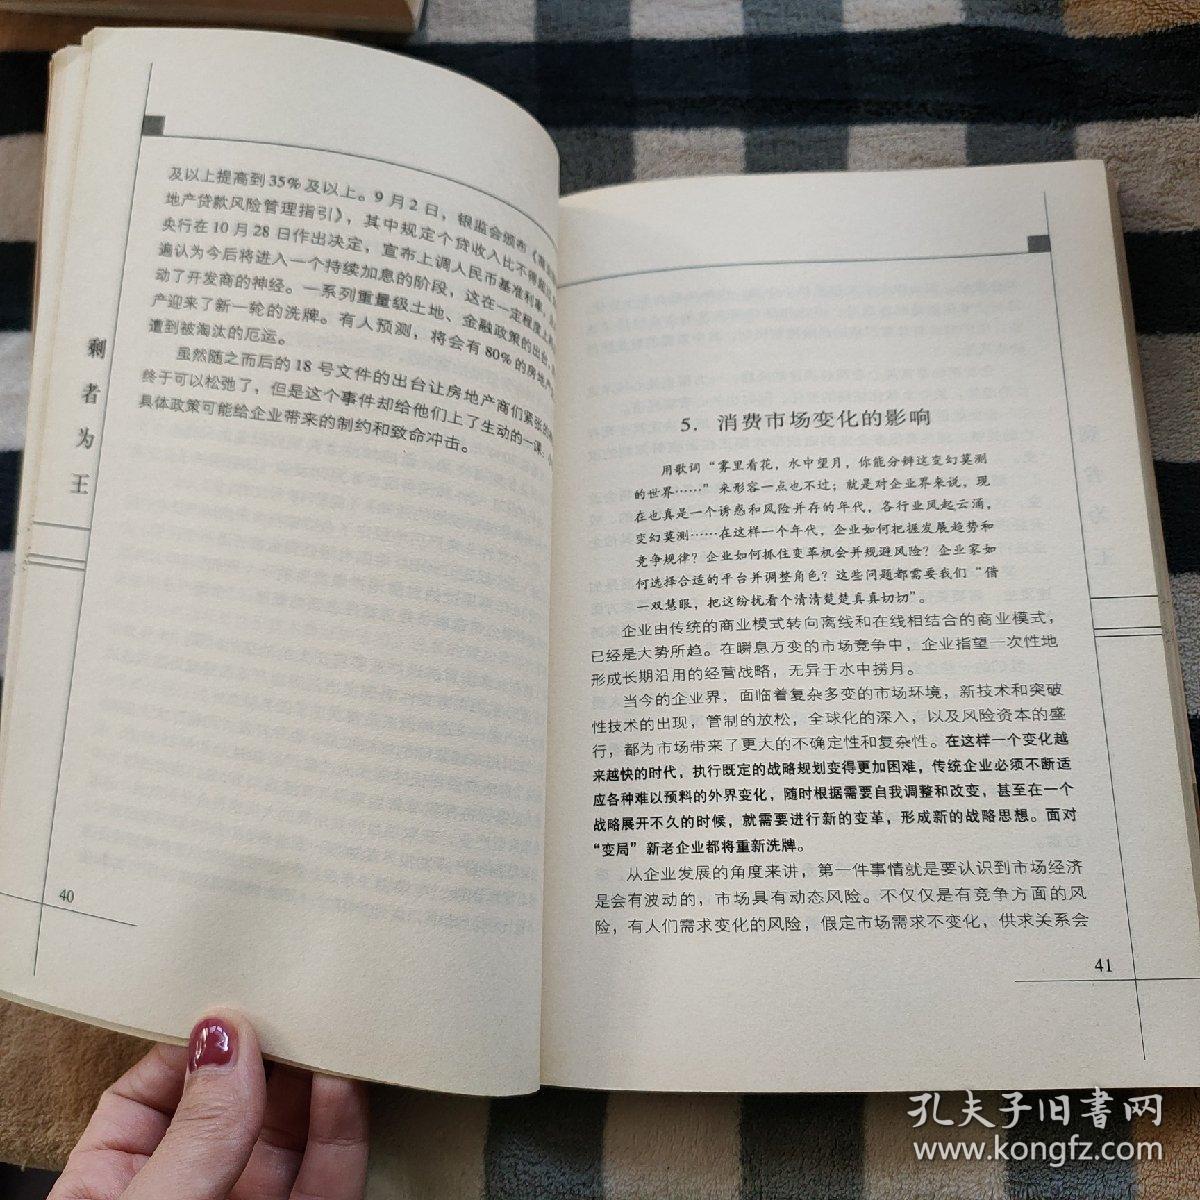 及以上提高到35%及以上。9月2日，银监会颁布《
地产贷款风险管理指引》，其中规定个贷收入比不得
央行在10月28日作出决定，宣布上调人民币基准利率
遍认为今后将进入一个持续加息的阶段，这在一定程度
动了开发商的神经。一系列重量级土地、金融政策的出台
产迎来了新一轮的洗牌。有人预测，将会有80%的房地产
遭到被淘汰的厄运。
虽然随之而后的18号文件的出台让房地产商们紧张的
终于可以松弛了，但是这个事件却给他们上了生动的一课
具体政策可能给企业带来的制约和致命冲击。
剩者为王
40
5. 消费市场变化的影响
用歌词“雾里看花，水中望月，你能分辨这变幻莫测
的世界……”来形容一点也不过；就是对企业界来说，现
在也真是一个诱惑和风险并存的年代，各行业风起云涌，
变幻莫测……在这样一个年代，企业如何把握发展趋势和
竞争规律？企业如何抓住变革机会并规避风险？企业家如
何选择合适的平台并调整角色？这些问题都需要我们“借
一双慧眼，把这纷扰看个清清楚楚真真切切”。
企业由传统的商业模式转向离线和在线相结合的商业模式，
已经是大势所趋。在瞬息万变的市场竞争中，企业指望一次性地
形成长期沿用的经营战略，无异于水中捞月。
当今的企业界，面临着复杂多变的市场环境，新技术和突破
性技术的出现，管制的放松，全球化的深入，以及风险资本的盛
行，都为市场带来了更大的不确定性和复杂性。在这样一个变化越
来越快的时代，执行既定的战略规划变得更加困难，传统企业必须不断适
应各种难以预料的外界变化，随时根据需要自我调整和改变，甚至在一个
战略展开不久的时候，就需要进行新的变革，形成新的战略思想。面对
“变局”新老企业都将重新洗牌。
从企业发展的角度来讲，第一件事情就是要认识到市场经济
是会有波动的，市场具有动态风险。不仅仅是有竞争方面的风
险，有人们需求变化的风险，假定市场需求不变化，供求关系会
41
孔夫子旧書网
www.kongfz.com